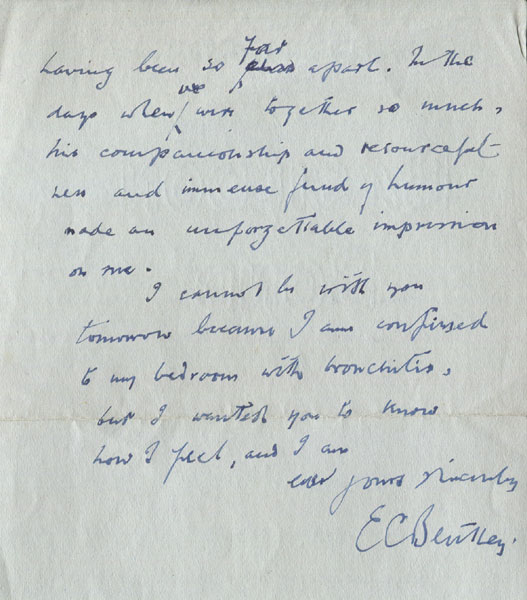 having been so far apart. In the
days when we were together so much,
his companionship and resourceful-
ness and immense fund of humour
made an unforgettable impression
on me.
I cannot be with you
tomorrow because I am confined
to my bedroom with bronchitis,
but I wanted you to know
how I feel, and I am
ever yours sincerely
E C Bentley.